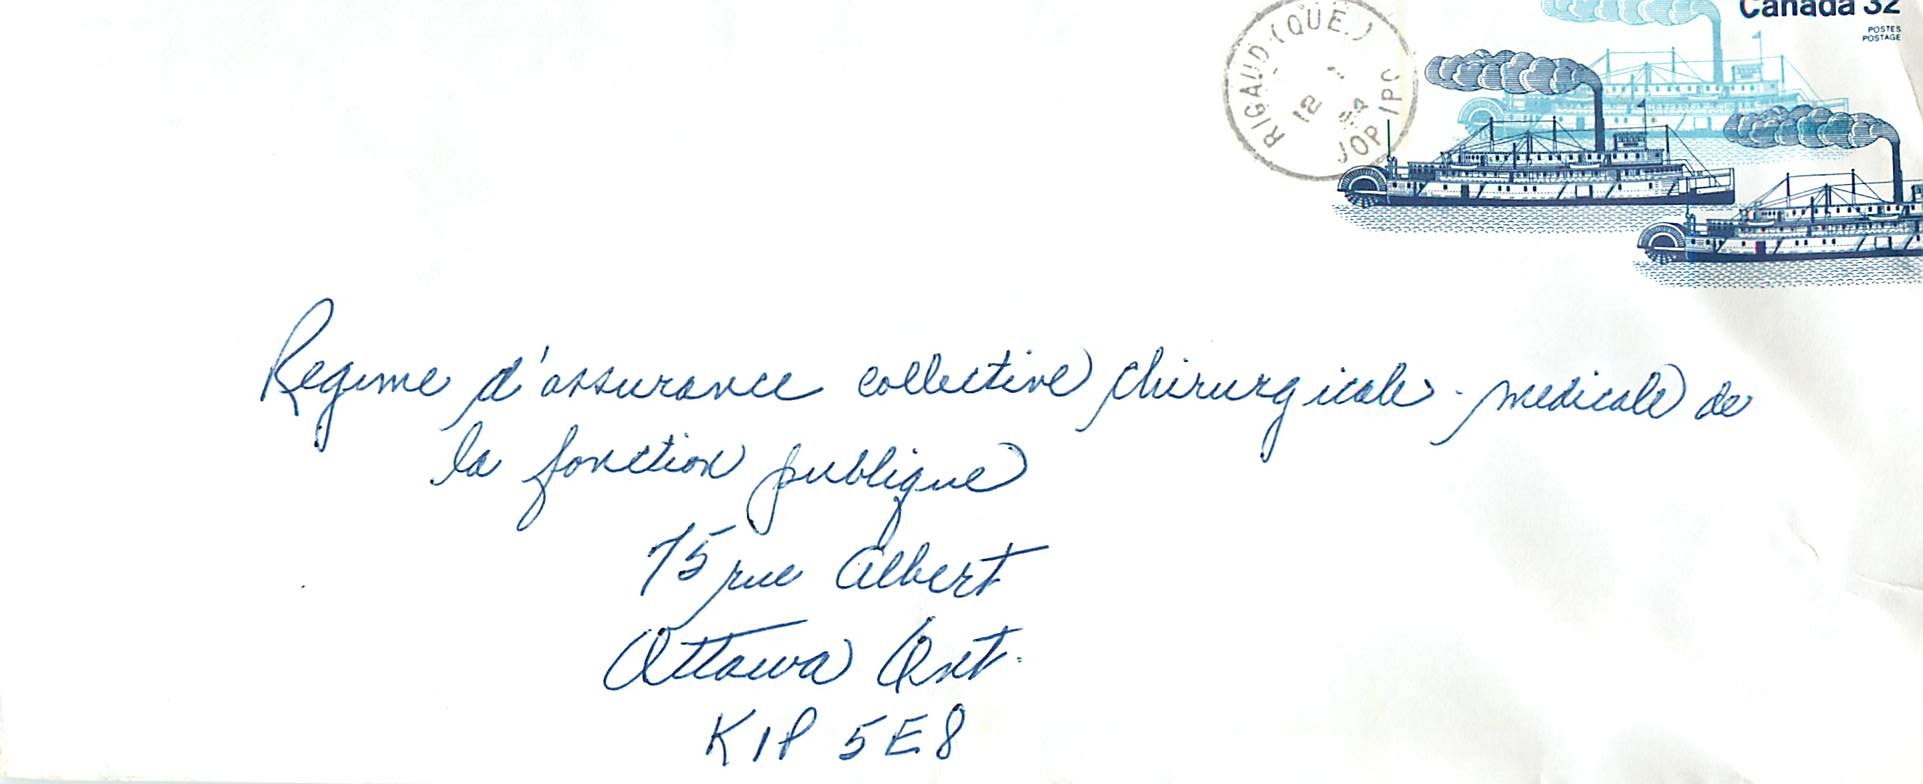 Canada 32
POSTES
POSTAGE
RIGAUD (QUE.)
12
JOP 1P0
Regime d'assurance collective chirurgicale - medicale de
la fonction publique
75 rue Albert
Ottawa Ont.
K1P 5E8